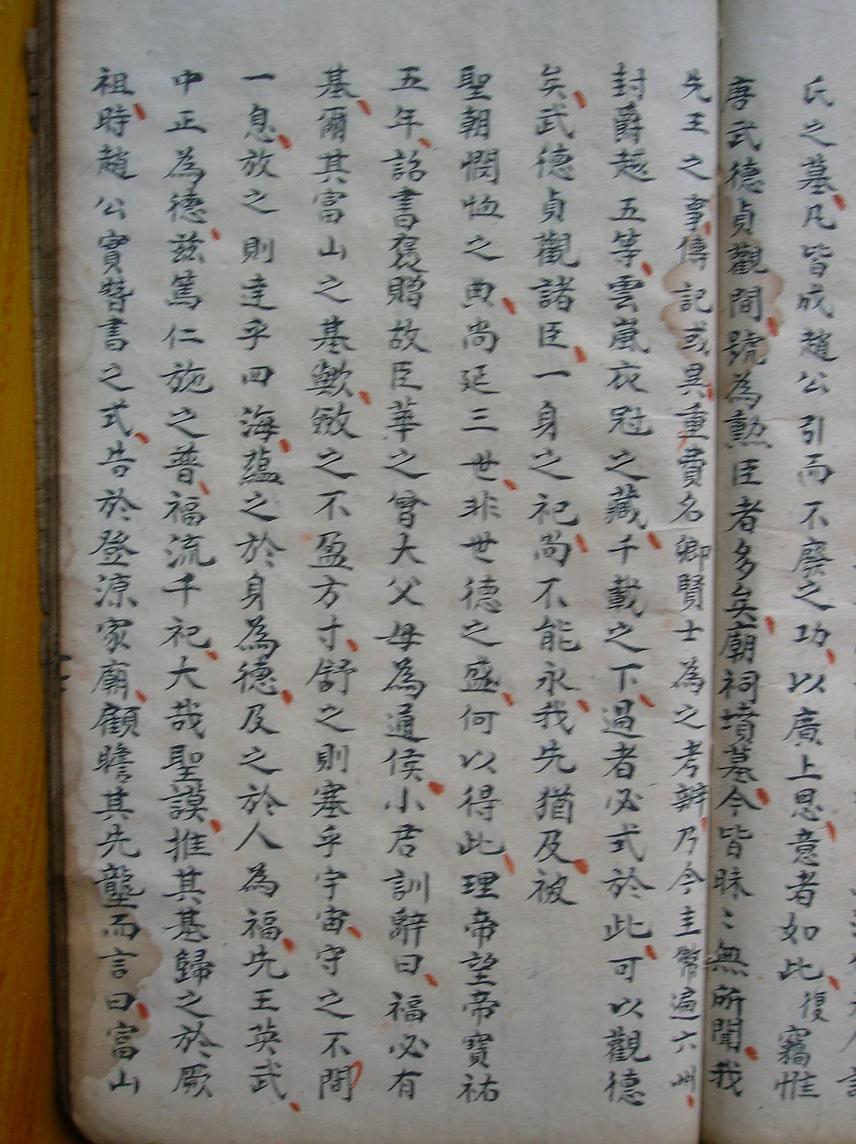 氏之墓凡皆成趙公引而不廢之功以廣上恩意者如此復竊惟
唐武德貞觀間號為勲臣者多矣廟祠墳墓今皆昧〻無所聞我
先王之事傳記或異重費名卿賢士為之考辨乃今圭幣遍六州
封爵越五等雲嵐衣冠之藏千載之下過者必式於此可以觀德
矣武德貞觀諸臣一身之祀尚不能永我先猶及被
聖朝憫恤之典尚延三世非世德之盛何以得此理帝望帝寳祐
五年詔書褒贈故臣華之曾大父母為通侯小君訓辭曰福必有
基爾其富山之基歟斂之不盈方寸舒之則塞乎宇宙守之不間
一息放之則達乎四海蘊之於身為德及之於人為福先王英武
中正為德茲篤仁施之普福流千祀大哉聖謨推其基歸之於厥
祖時趙公實督書之式告於登源家廟顧瞻其先壟而言曰富山